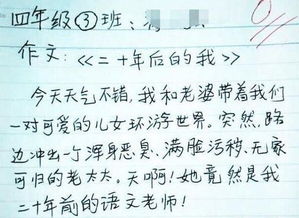 四年级③班:
作文:《二十年后的我》
今天天气不错,我和老婆带着我们
一对可爱的儿女环游世界。突然,路
边冲出一个浑身恶臭、满脸污秽、无家
可归的老太太。天啊!她竟然是我
二十年前的语文老师!